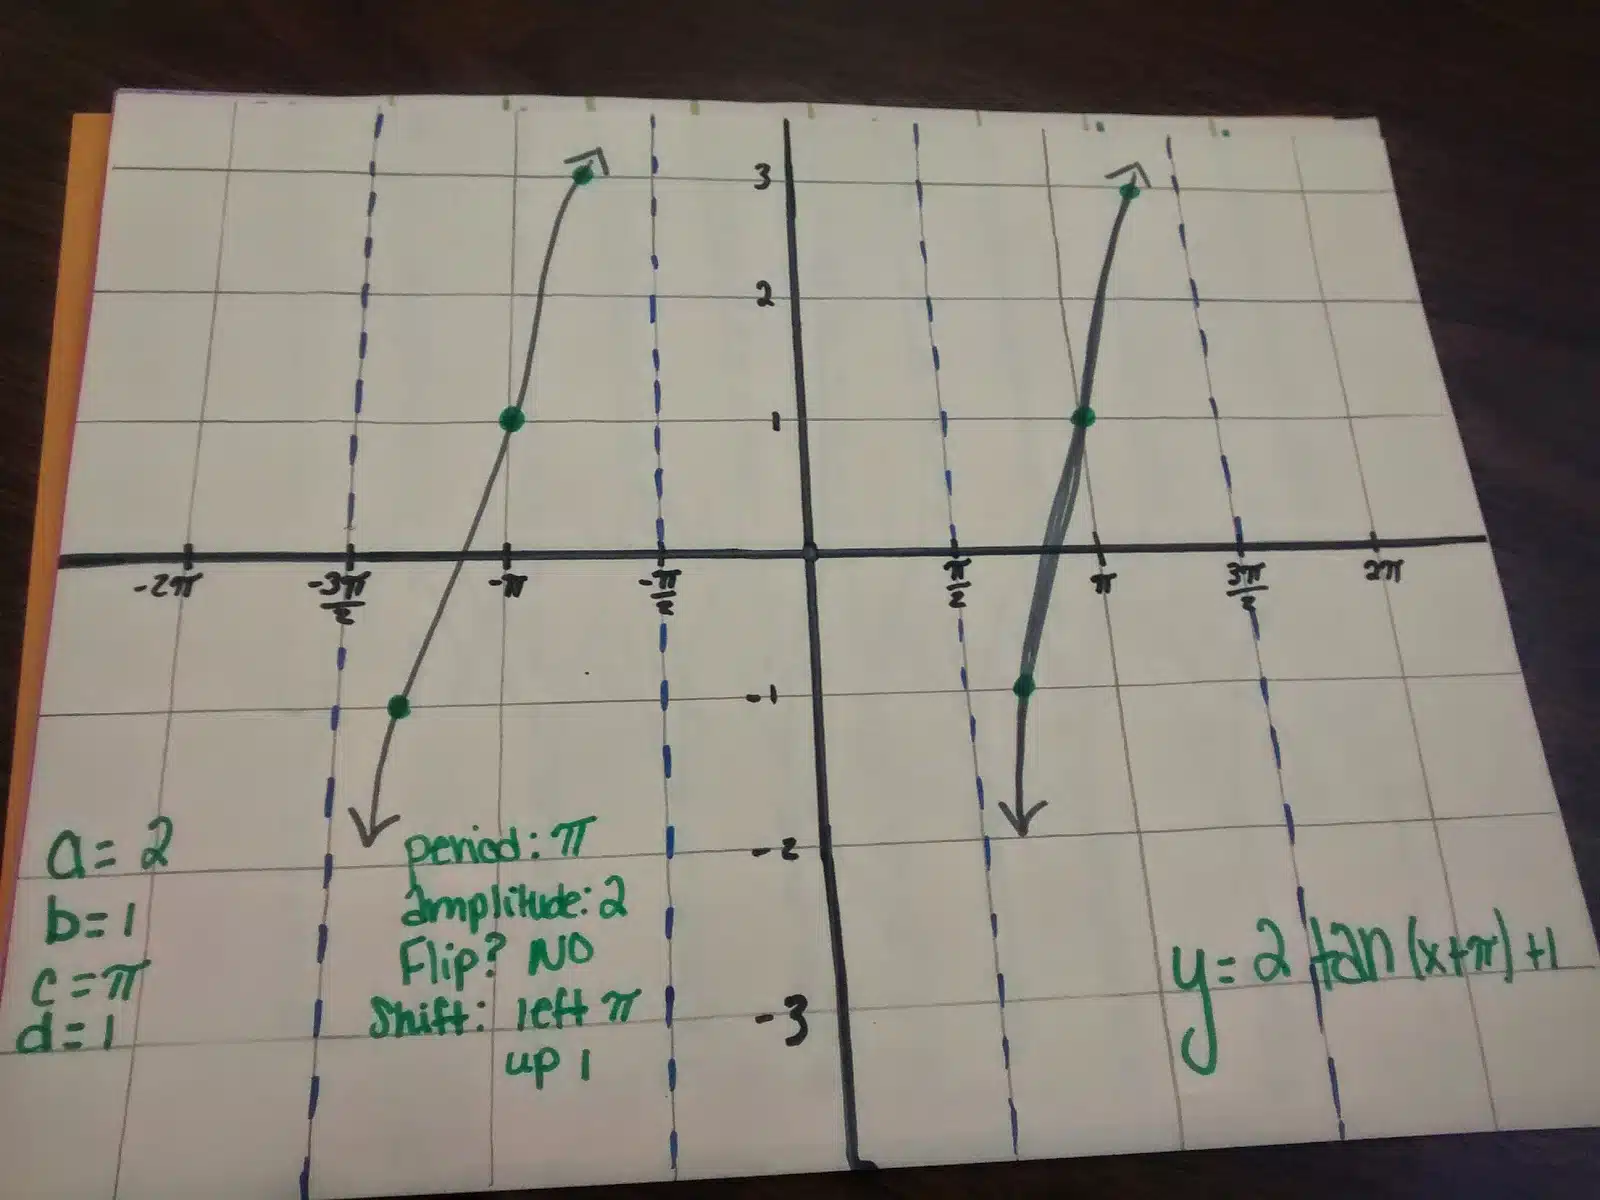 3
2
1
-2π
-3π/2
-π
-π/2
π/2
π
3π/2
2π
-1
-2
-3
a=2
b=1
c=π
d=1
period: π
amplitude: 2
Flip? NO
Shift: left π
up 1
y=2 tan(x+π)+1